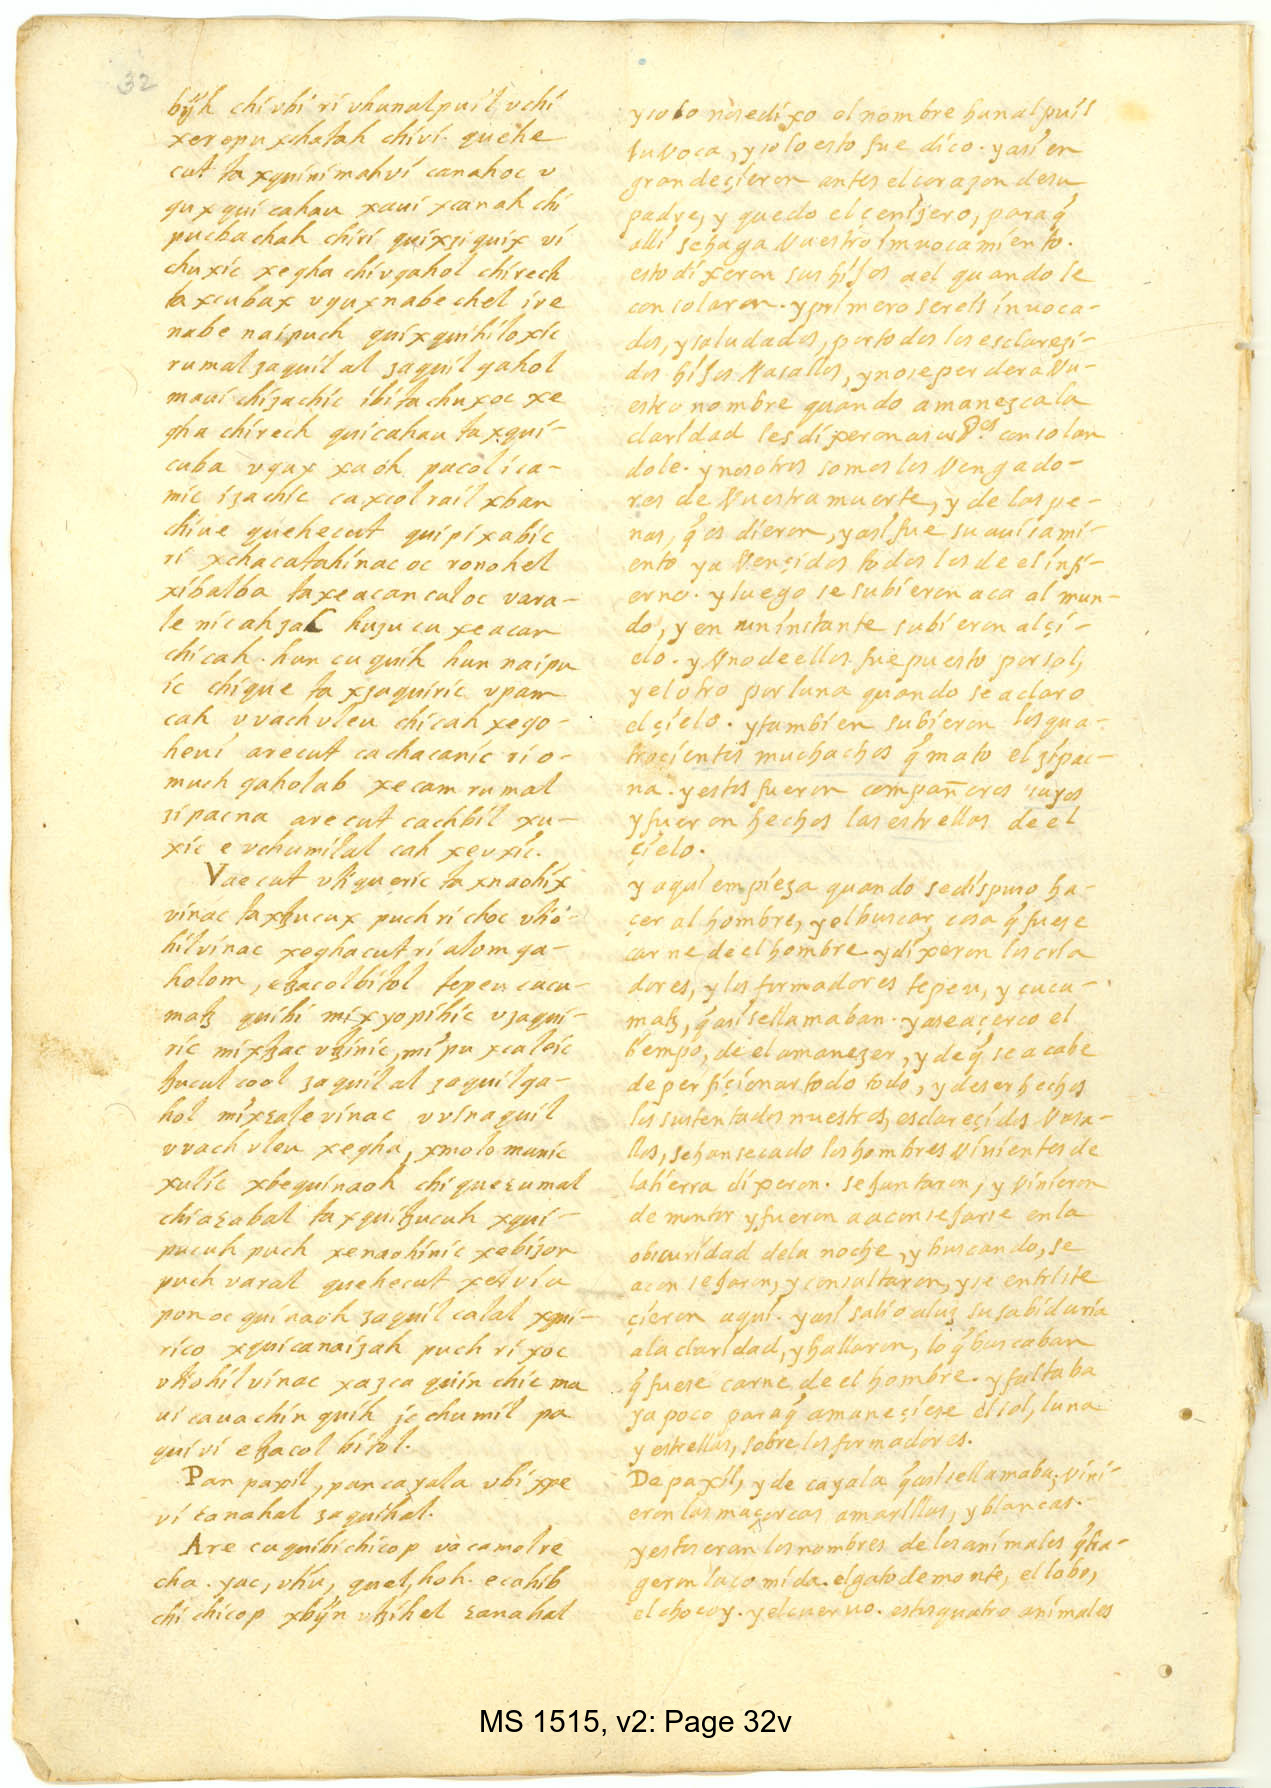 32
bÿh chi vbi ri vhunalpuil vchi
xerepu xchatah chivi. quehe
cut ta xquinimahvi canahoc v
qux quicahau xavi xcanah chi
pucbachah chiri quixziquix vi
chuxic xegha chi vgahol chirech
ta xcubax vquxnabe chel ive
nabe naipuch quixquihiloxic
rumal zaquil al zaquil gahol
maui chizachic ibi ta chuxoc xe
gha chirech quicahau ta xqui-
cuba vqux xa oh pacol ica-
mic izachic caxcol rail xban
chiue quehecut quipixabic
ri xchacatahinac oc ronohel
xibalba ta xeacan culoc vara-
le nicah zac huzu cu xeacan
chicah. hun cu quih hun naipu
ic chique ta xzaquiric vpam
cah vvach vleu chicah xego-
heui arecut cachacanic ri o-
much gaholab xecam rumal
zipacna arecut cachbil xu-
xic e vchumilal cah xeuxic.
Vae cut vtiqueric ta xnaohix
vinac ta xtzucux puch ri choc vtio-
hil vinac xeghacut ri alom ga-
holom, etzacolbitol tepeu cucu-
matz quibi mixyopihic vzaqui-
ric mixtzac vtzinic, mi pu xcaleic
tzucul cool zaquil al zaquil ga-
hol mixzale vinac vvinaquil
vvach vleu xegha, xmolomanic
xulic xbequinaoh chi quezumal
chi azabal ta xquitzucuh xqui-
pucuh puch xenaohinic xebizon
puch varal quehecut xelvi a
ponoc quinaoh zaquil calal xqui-
rico xquicanaizah puch ri xoc
vtiohil vinac xazca quiin chic ma
ui cauachin quih ic chumil pa
quivi etzacol bitol.
Pan paxil, pan cayala vbi xpe
vi zanahal zaquihal.
Are cu quibi chicop va camol re
cha. yac, vtiu, quel, hoh. e cahib
chi chicop xbÿn vtzihel zanahal
y solo nos edixo el nombre hunalpuil
su voca, y solo esto fue dico. y asi en
grandeçieron antes el corazon de su
padre, y quedo el çenizero, para q̃
alli se haga vuestro imuocamiento.
esto dixeron sus hijos a el quando le
consolaron. y primero sereis inuoca-
dos, y saludados, por todos los esclareçi-
dos hijos Vasallos, y no se perdera Vu-
estro nombre quando amanezca la
claridad les dixeron a sus P.es consolan
dole. y nosotros somos los Vengado-
res de Vuestra muerte, y de las pe-
nas, q̃ os dieron, y asi fue su auisami-
ento ya Vençidos todos los de el infi-
erno. y luego se subieron aca al mun-
do, y en un instante subieron al çi-
elo. y Vno de ellos fue puesto por sol,
y el otro por luna quando se aclaro
el çielo. y tambien subieron los qua-
troçientos muchachos q̃ mato el zipac-
na. y estos fueron compañeros suyos
y fueron hechos las estrellas de el
çielo.
y aqui empieza quando se dispuso ha-
çer al hombre, y el buscar cosa q̃ fuese
carne de el hombre y dixeron los cria
dores, y los formadores tepeu, y çucu-
matz, q̃ asi se llamaban. ya se açerco el
tiempo, de el amanezer, y de q̃ se acabe
de perfiçionar todo todo, y de ser hechos
los sustentados nuestros, esclareçidos Vasa-
llos, se han secado los hombres vivientes de
la tierra dixeron. se juntaron, y vinieron
de monton y fueron a aconsejarse en la
obscuridad dela noche, y buscando, se
aconsejaron, y consultaron, y se entriste
çieron aqui. y asi salio a luz su sabiduria
a la claridad, y hallaron, lo q̃ buscaban
q̃ fuese carne de el hombre. y faltaba
ya poco para q̃ amaneçiese el sol, luna
y estrellas, sobre los formadores.
De paxil, y de cayala q̃ asi se llamaba, vini-
eron las maçorcas amarillas, y blancas.
y estos eran los nombres de los animales q̃ tra-
geron la comida. el gato de monte, el lobo,
el chocoy. y el cueruo. estos quatro animales
MS 1515, v2: Page 32v